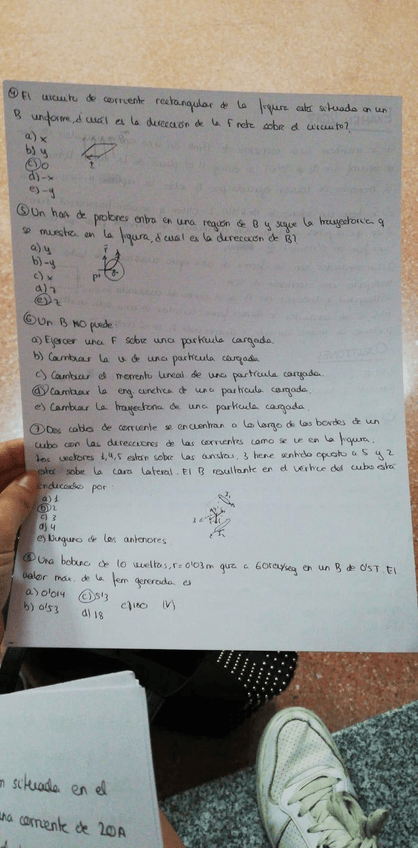 ④ El circuito de corriente rectangular de la figura está situado en un
B uniforme, ¿cuál es la dirección de la F neta sobre el circuito?
a) x
b) y
c) 0
d) -x
e) -y
⑤ Un haz de protones entra en una región de B y sigue la trayectoria q
se muestra en la figura, ¿cuál es la dirección de B?
a) y
b) -y
c) x
d) z
e) -z
⑥ Un B NO puede
a) Ejercer una F sobre una partícula cargada.
b) Cambiar la v de una partícula cargada
c) Cambiar el momento lineal de una partícula cargada.
d) Cambiar la eng. cinética de una partícula cargada.
e) Cambiar la trayectoria de una partícula cargada.
⑦ Dos cables de corriente se encuentran a lo largo de los bordes de un
cubo con las direcciones de las corrientes como se ve en la figura.
Los vectores 1,4,5 están sobre las aristas, 3 tiene sentido opuesto a 5 y 2
está sobre la cara lateral. El B resultante en el vértice del cubo está
indicado por:
a) 1
b) 2
c) 3
d) 4
e) Ninguno de los anteriores
⑧ Una bobina de 10 vueltas, r = 0'03m gira a 60 rev/seg en un B de 0'5T. El
valor máx. de la fem generada es
a) 0'014
b) 0'53
c) 5'3
d) 18
e) 180 (V)
n situada en el
una corriente de 20A